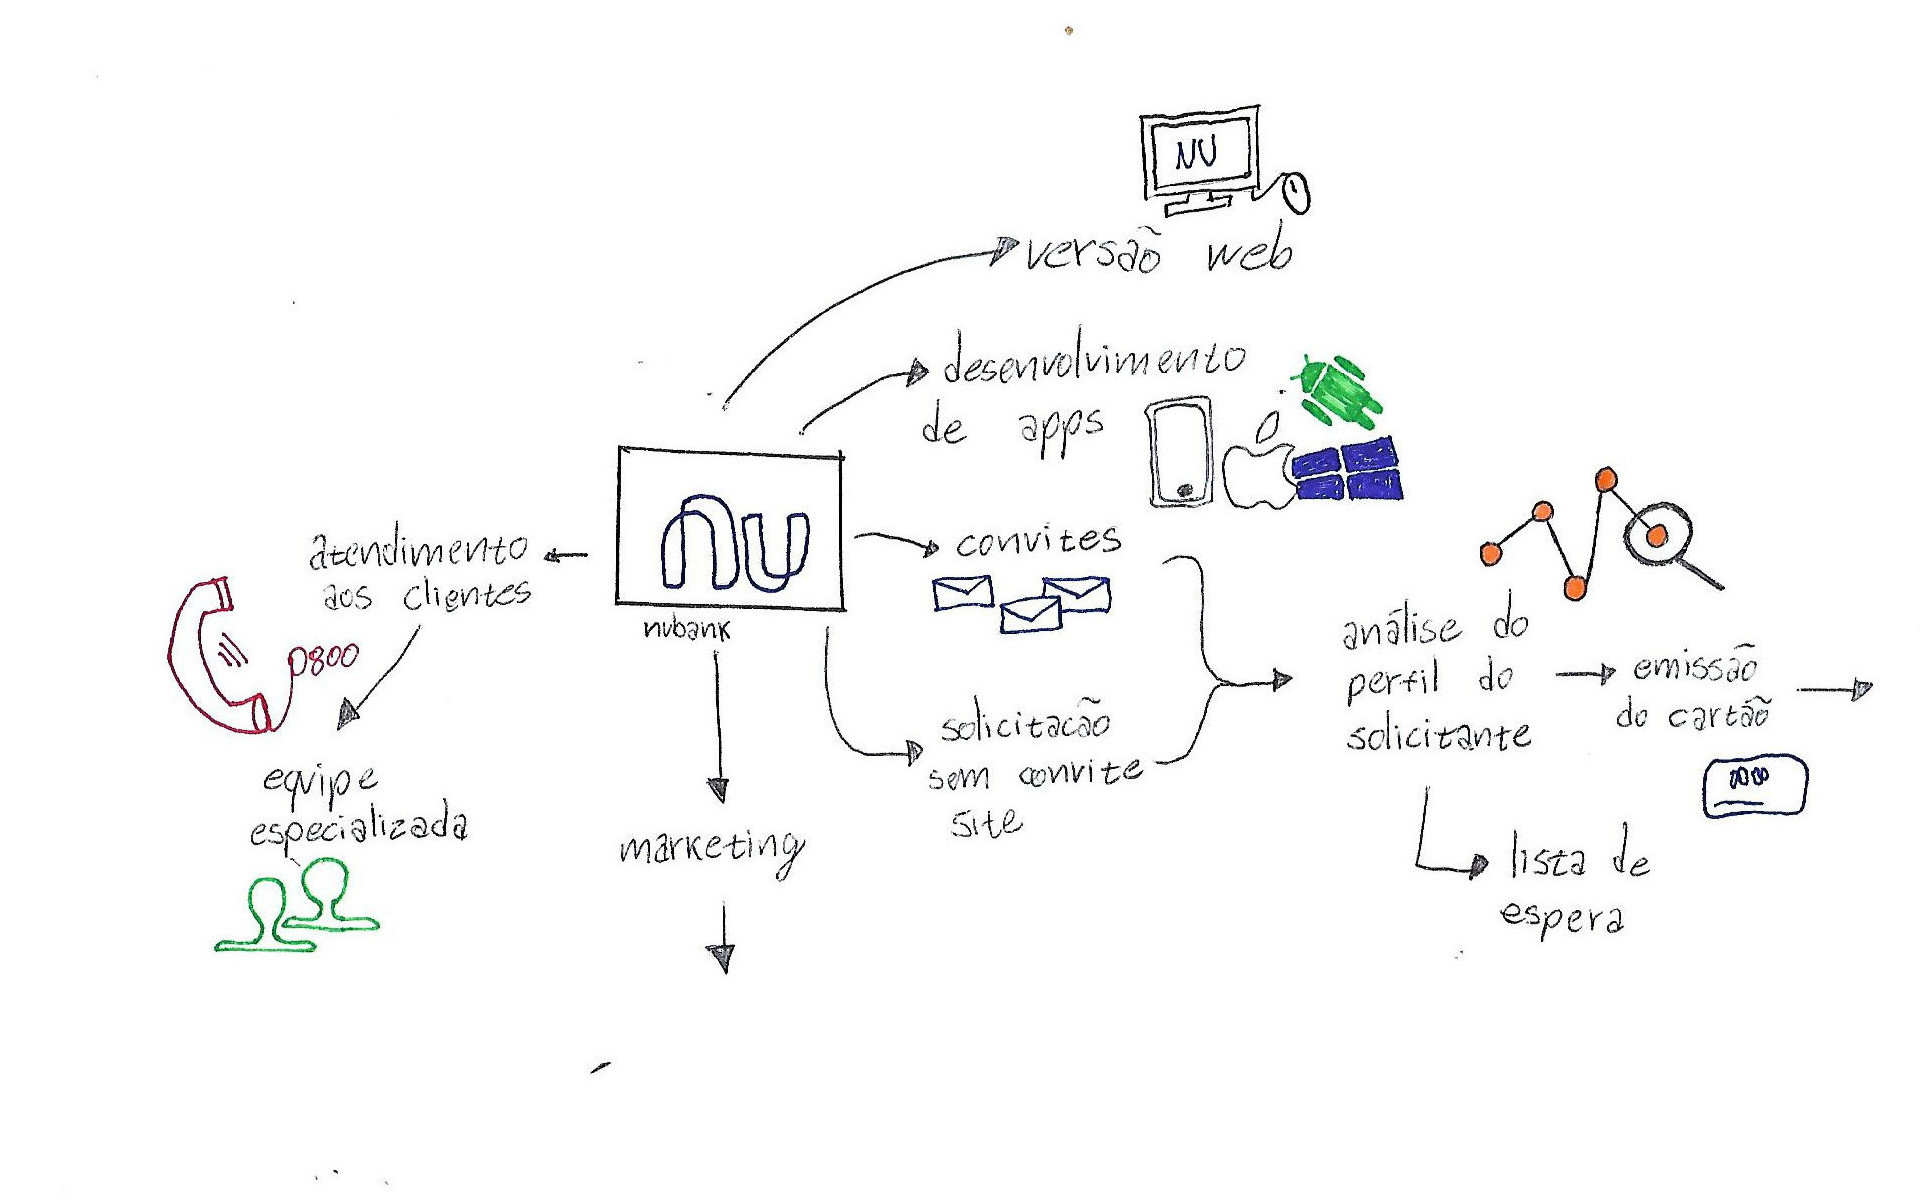 NU
versão web
desenvolvimento
de apps
nu
nubank
atendimento
aos clientes
0800
equipe
especializada
convites
solicitacão
sem convite
site
marketing
análise do
perfil do
solicitante
emissão
do cartão
lista de
espera